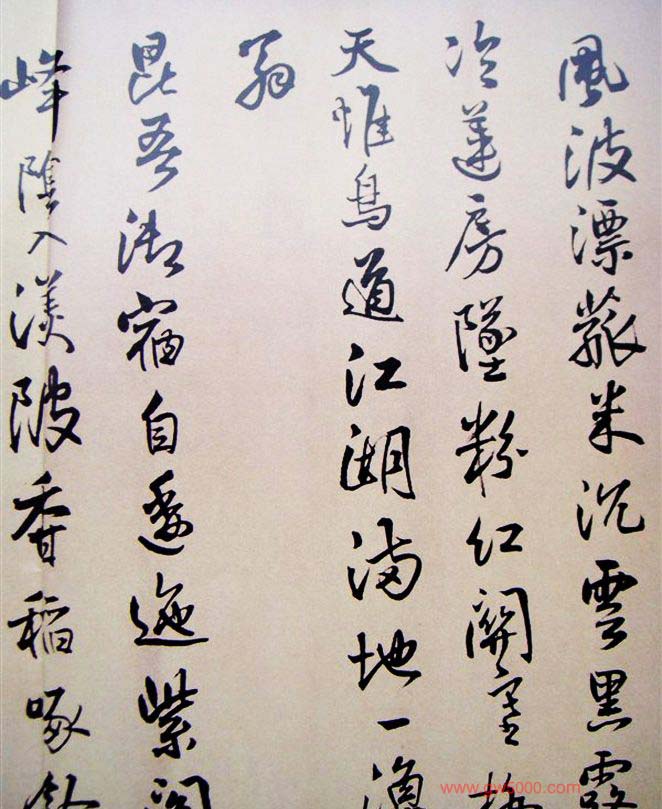 風波漂菰米沉雲黑露
冷蓮房墜粉紅關塞
天惟鳥道江湖滿地一漁
翁
昆吾御宿自逶迤紫閣
峰陰入渼陂香稻啄